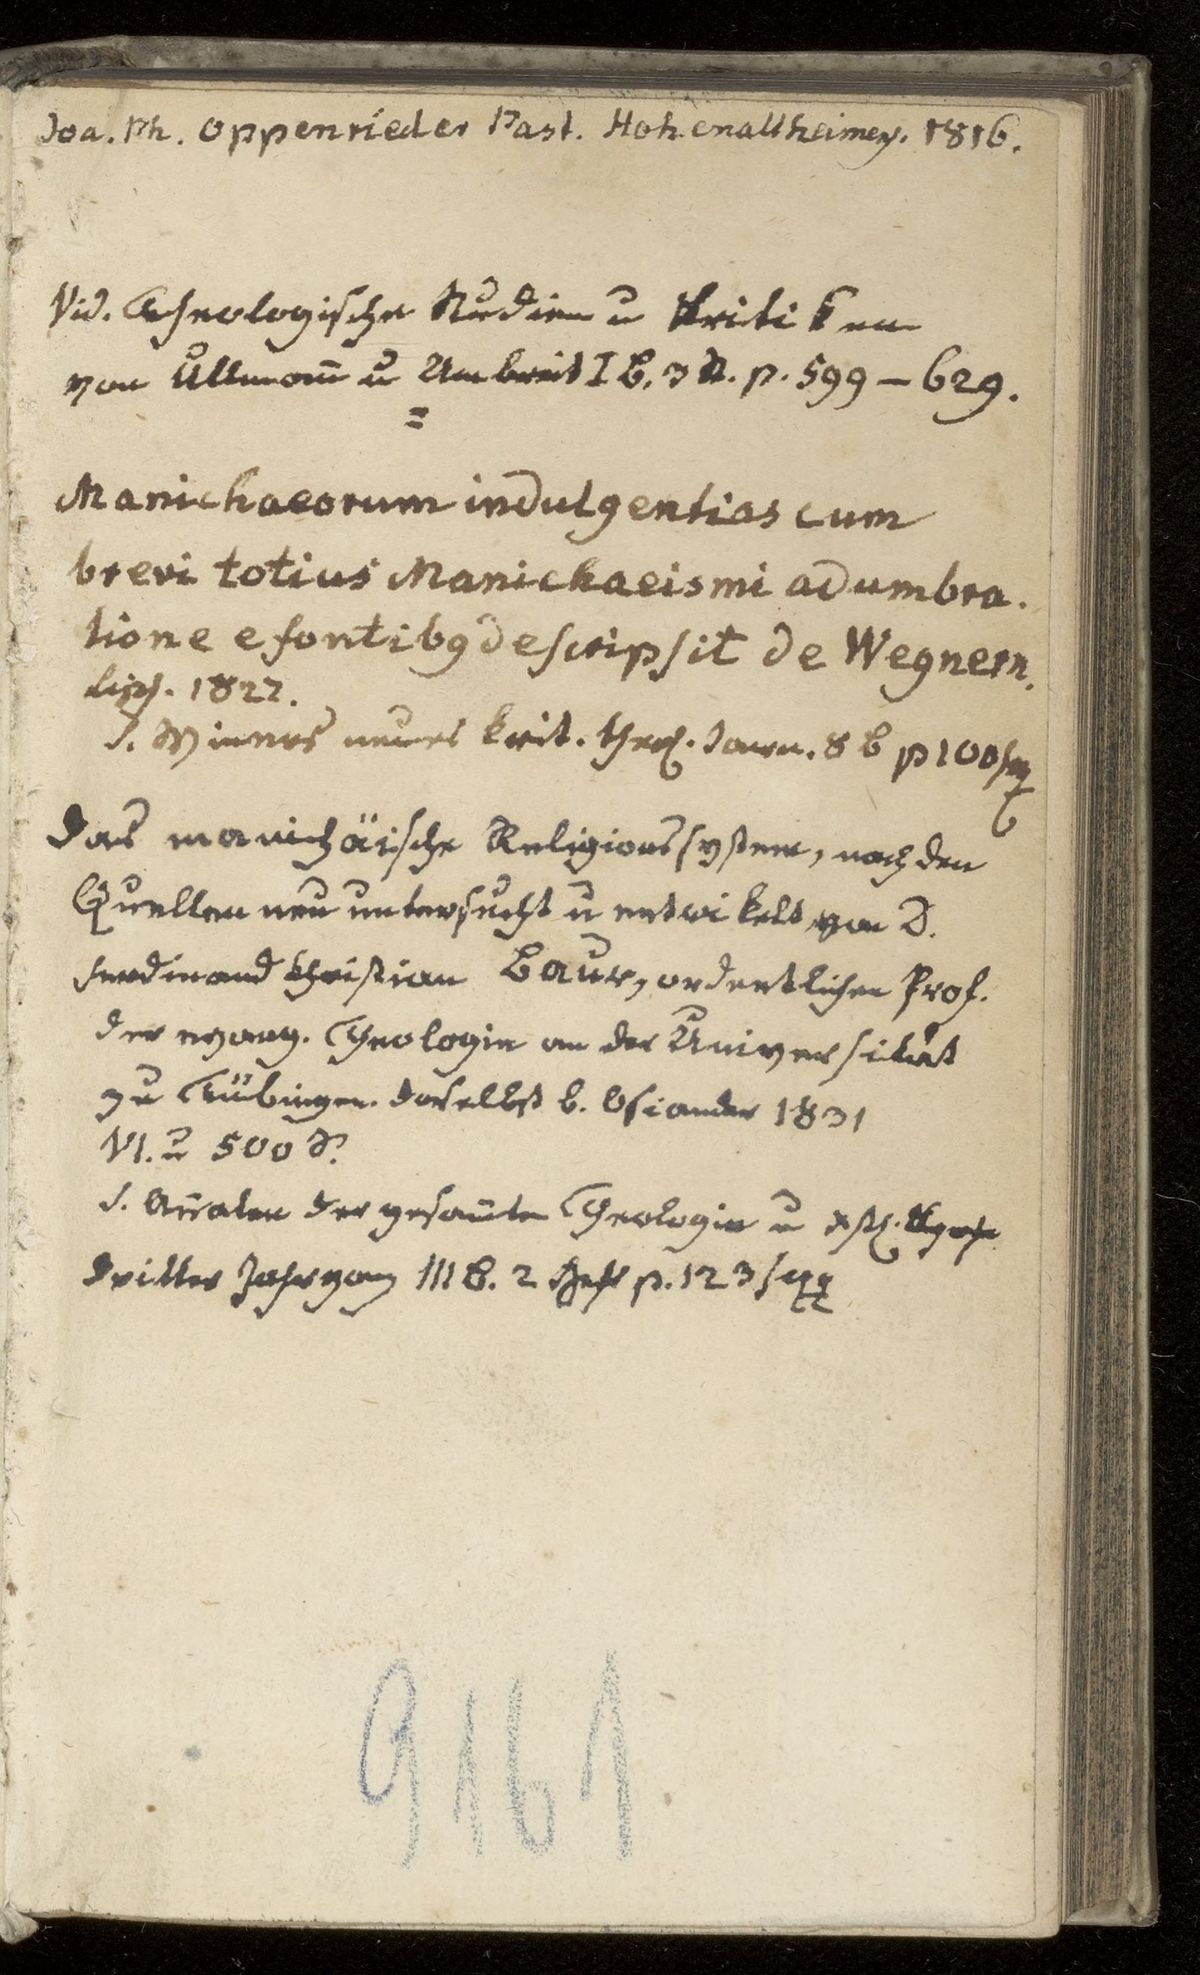 Joa. Ph. Oppenrieder Past. Hohenaltheimens. 1816.
Vid. Theologische Studien u Kritiken
von Ullmann u Umbreit I B. 3 St. p. 599 – 629.
=
Manichaeorum indulgentias cum
brevi totius Manichaeismi adumbra.
tione e fontibg descripsit de Wegnern.
Lips. 1827.
S. Winers neues krit. theol. Journ. 8 b p 100 sq
Das manichäische Religionssystem, nach den
Quellen neu untersucht u entwikelt von D.
Ferdinand Christian Baur, ordentlichen Prof.
der evang. Theologie an der Universität
zu Tübingen. Daselbst b. Osiander 1831
VI. u 500 S.
S. Analen der gesamten Theologie u
Dritter Jahrgang III B. 2 Heft p. 123 sqq
9161